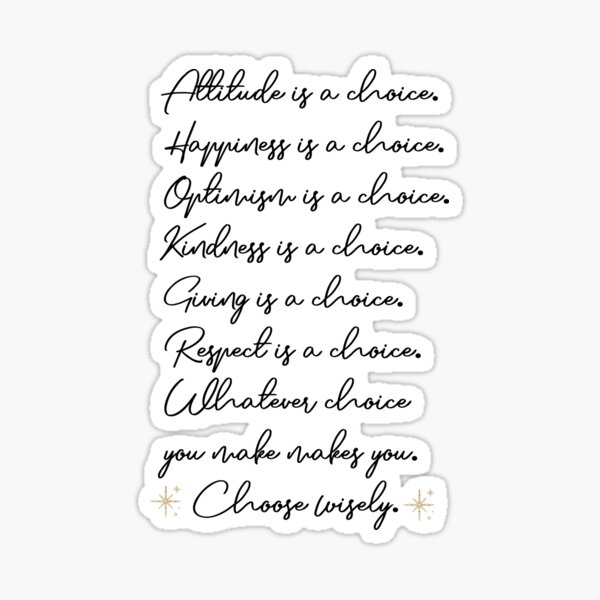 Attitude is a choice.
Happiness is a choice.
Optimism is a choice.
Kindness is a choice.
Giving is a choice.
Respect is a choice.
Whatever choice
you make makes you.
Choose wisely.